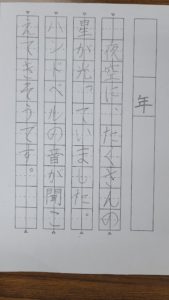 年
夜空に、たくさんの
星が光っていました。
ハンドベルの音が聞こ
えてきそうです。